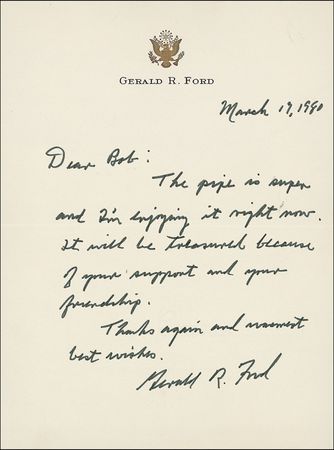 GERALD R. FORD
March 19, 1980
Dear Bob:
The pipe is super
and I'm enjoying it right now.
It will be treasured because
of your support and your
friendship.
Thanks again and warmest
best wishes.
Gerald R. Ford